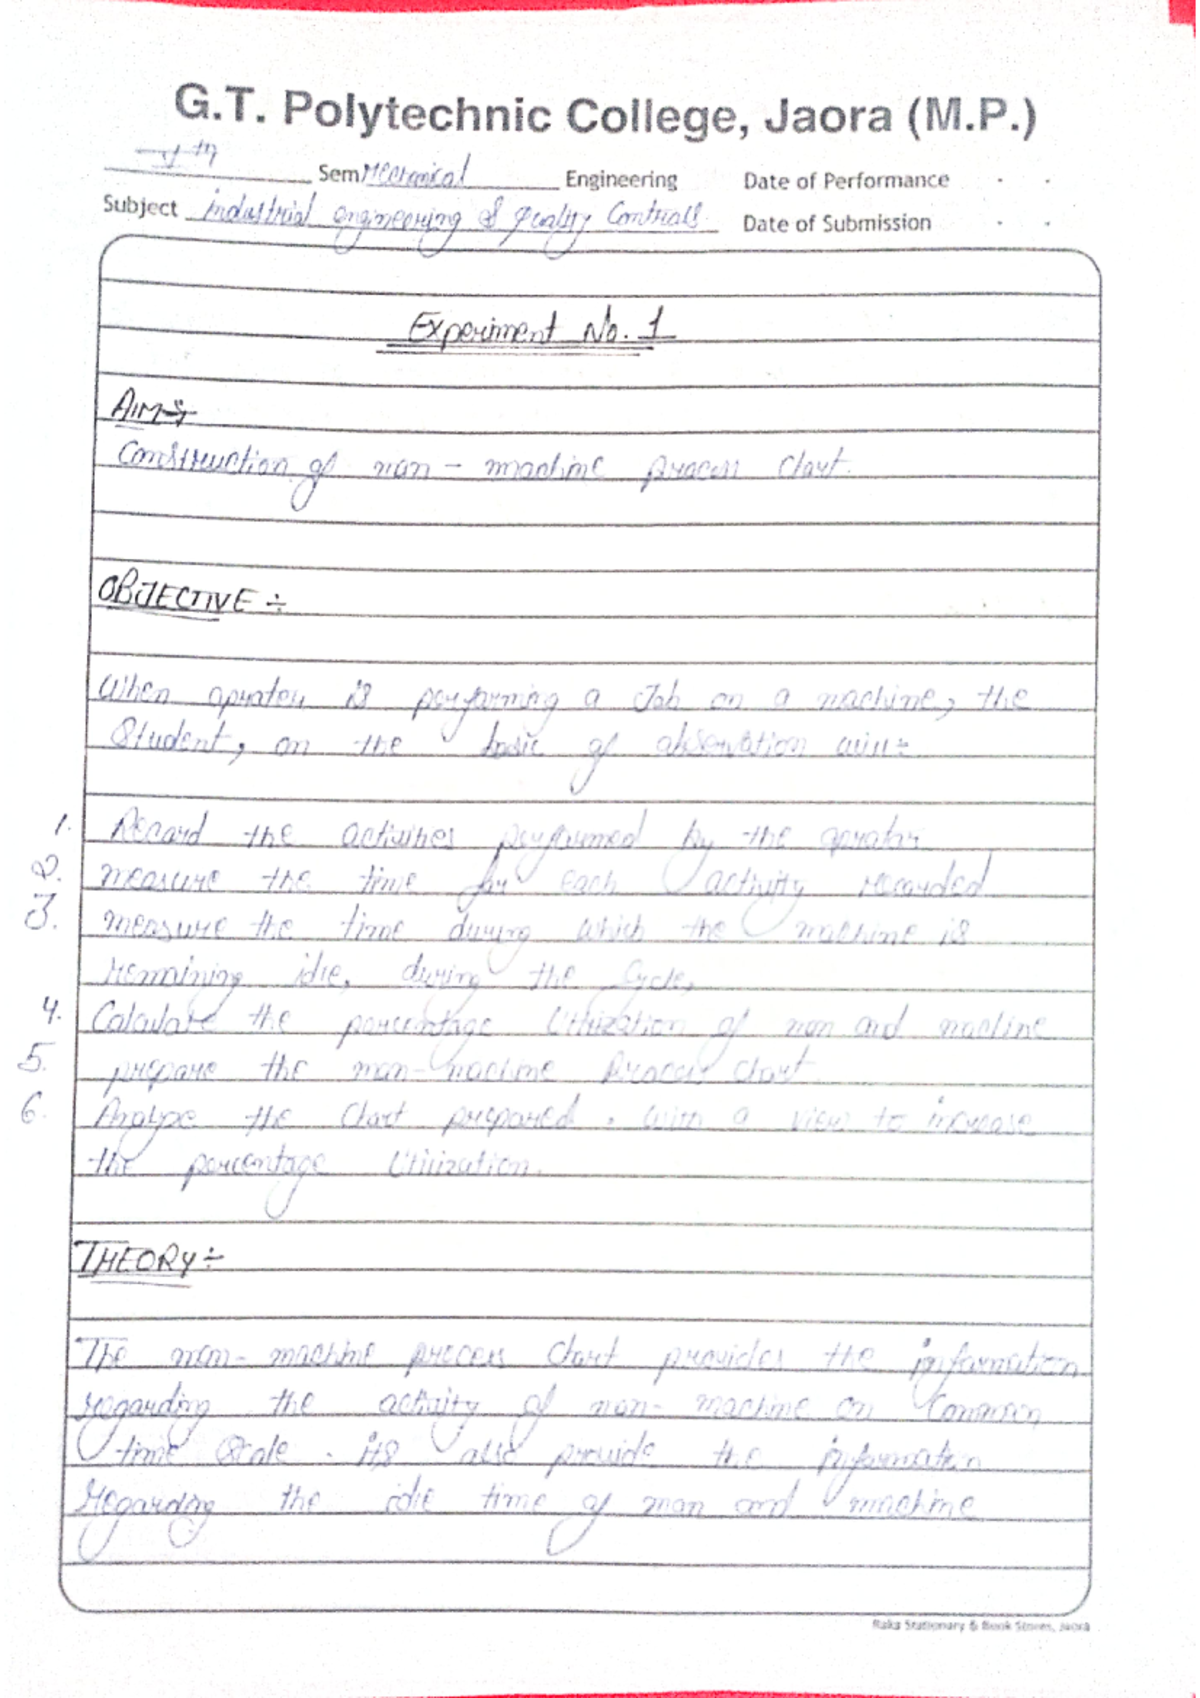 G.T. Polytechnic College, Jaora (M.P.)
Sem Mechanical Engineering Date of Performance - -
Subject industrial engineering & quality Controll Date of Submission - -
Experiment No. 1
AIM ÷
Construction of man - machine process chart.
OBJECTIVE ÷
When oprater is performing a Job on a machine, the
Student, on the basic of observation will:
1. Record the activities performed by the oprator
2. measure the time for each activity recorded
3. measure the time during which the machine is
remaining idle, during the cycle,
4. Calculate the percentage Utilization of man and machine
5. prepare the man-machine Process chart
6. Analyse the chart prepared, with a view to increase
the percentage Utilization.
THEORY ÷
The man-machine process chart provides the information
regarding the activity of man-machine on Common
time Scale. its also provide the information
Regarding the idle time of man and machine
Raka Stationary & Book Stores, Jaora